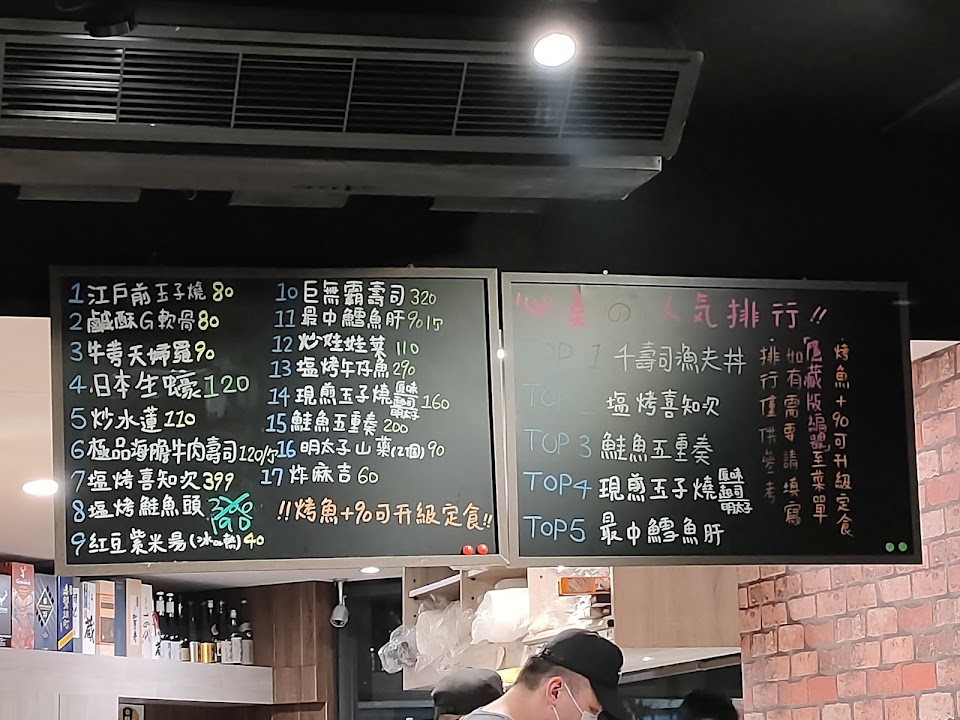 1 江戶前玉子燒 80
2 鹹酥G軟骨 80
3 牛蒡天婦羅 90
4 日本生蠔 120
5 炒水蓮 110
6 極品海膽牛肉壽司 120/万
7 塩烤喜知次 399
8 塩烤鮭魚頭 190
9 紅豆紫米湯(冰or熱) 40
10 巨無霸壽司 320
11 最中鱈魚肝 90/万
12 炒娃娃菜 110
13 塩烤午仔魚 290
14 現煎玉子燒 原味 壽司 明太子 160
15 鮭魚五重奏 200
16 明太子山藥(2個) 90
17 炸麻吉 60
!!烤魚+90可升級定食!!
の人気排行!!
TOP 1 千壽司漁夫丼
TOP 塩烤喜知次
TOP 3 鮭魚五重奏
TOP4 現煎玉子燒 原味 壽司 明太子
TOP5 最中鱈魚肝
烤魚+90可升級定食
「隱藏版編號」至菜單
如有需要請填寫
排行僅供參考